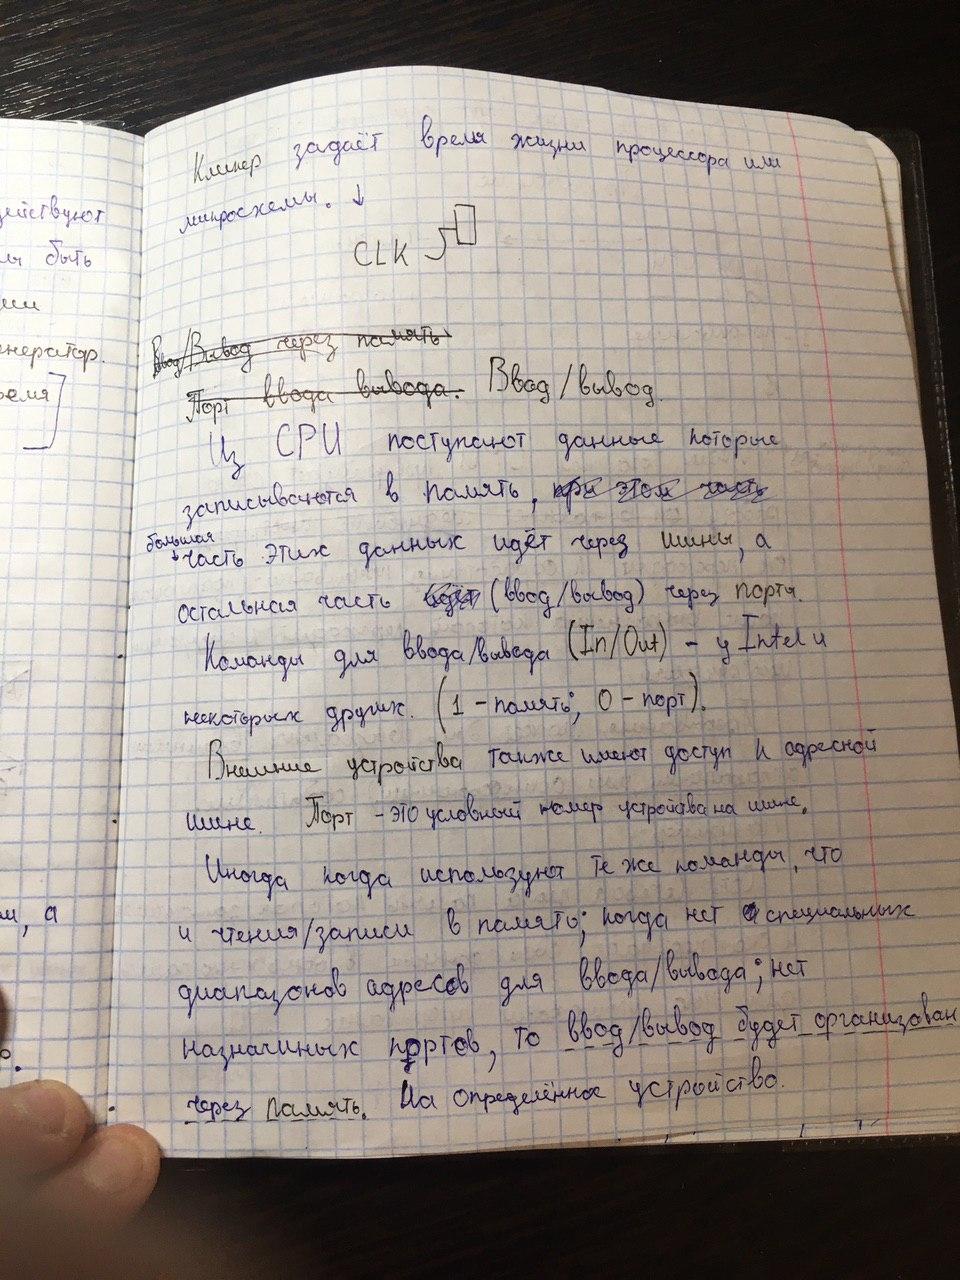 действуют
ны быть
ии
енератор.
ремя
м, а
о.
Клинер задаёт время жизни процессора или
микросхемы. ↓
CLK
Ввод/Вывод через память
Порт ввода вывода. Ввод/вывод.
Из CPU поступают данные которые
записываются в память, при этом часть
большая
часть этих данных идёт через шины, а
остальная часть (ввод/вывод) через порты.
Команды для ввода/вывода (In/Out) – у Intel и
некоторых других. (1 – память; 0 – порт).
Внешние устройства также имеют доступ к адресной
шине. Порт – это условный номер устройства на шине.
Иногда когда используют те же команды, что
и чтения/записи в память; когда нет специальных
диапазонов адресов для ввода/вывода; нет
назначиных портов, то ввод/вывод будет организован
через память. На определённое устройство.